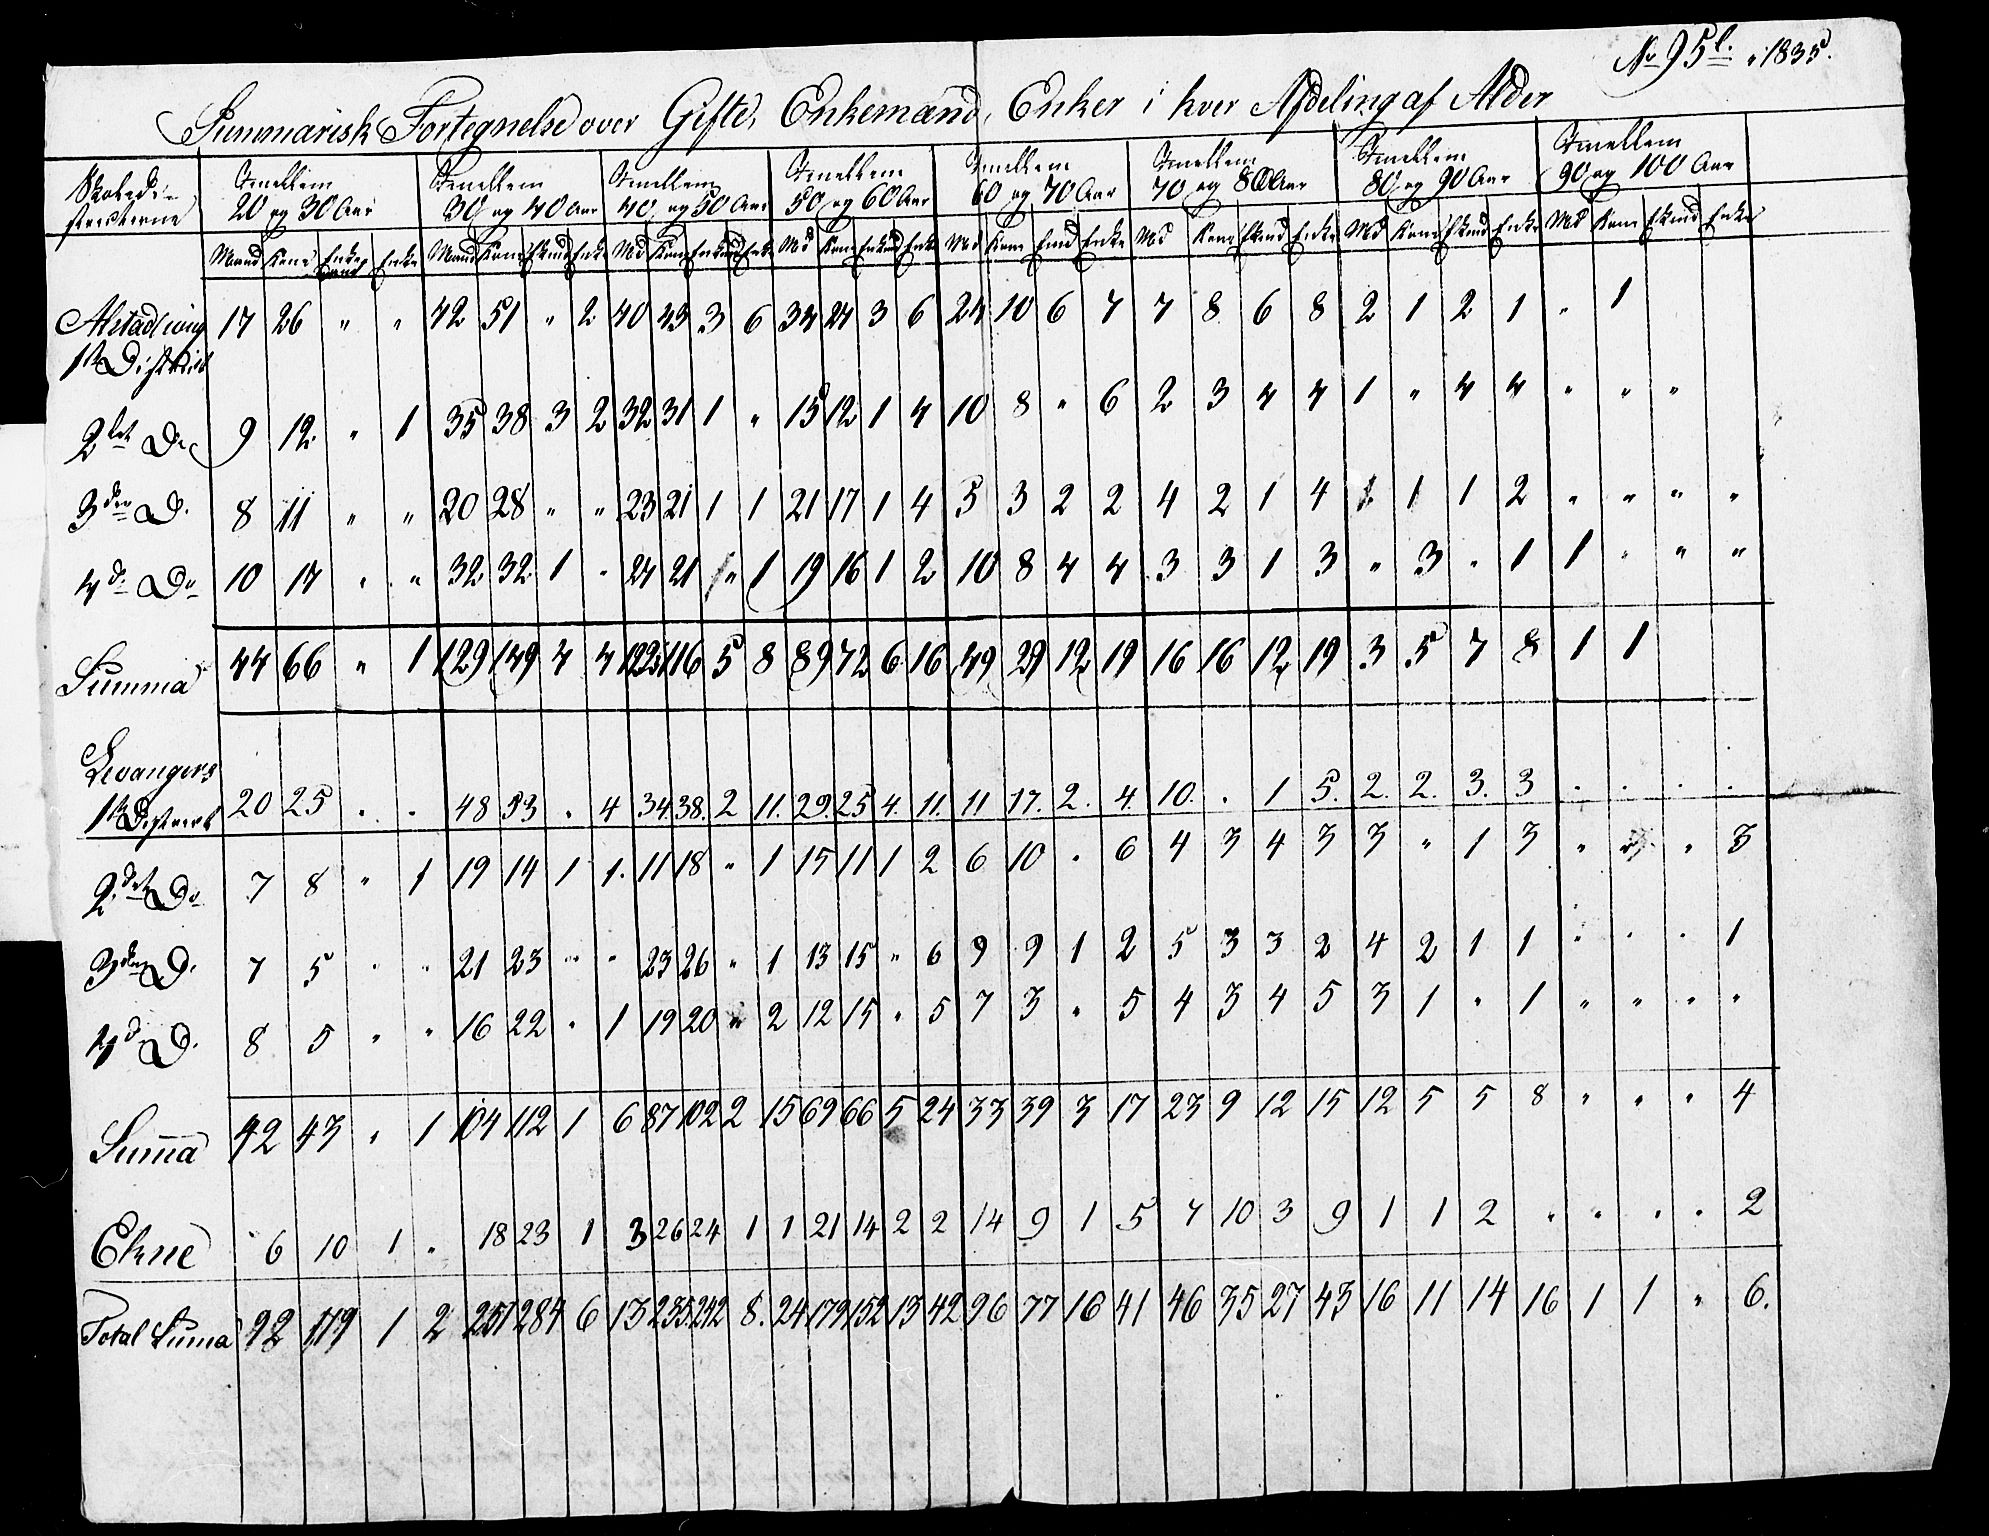 No 95 l. 1835.
Summarisk Fortegnelse over Gifte, Enkemænd, Enker i hver Afdeling af Alder
Skoledi-
stricterne
Imellem 20 og 30 Aar Imellem 30 og 40 Aar Imellem 40 og 50 Aar Imellem 50 og 60 Aar Imellem 60 og 70 Aar Imellem 70 og 80 Aar Imellem 80 og 90 Aar Imellem 90 og 100 Aar
Mand Kone Enkemand Enke Mand Kone Ekmd Enke Md Kone Enkmd Enke Md Kone Enkmd Enke Md Kone Emd Enke Md Kone Ekmd Enke Md Kone Ekmd Enke Md Kone Ekmd Enke
1ste District 17 26 " " 42 51 " 2 40 43 3 6 34 27 3 6 24 10 6 7 7 8 6 8 2 1 2 1 " 1
2det Do 9 12 " 1 35 38 3 2 32 31 1 " 15 12 1 4 10 8 " 6 2 3 4 4 1 " 4 4 " " "
3die D. 8 11 " " 20 28 " " 23 21 1 1 21 17 1 4 5 3 2 2 4 2 1 4 1 1 2 " " " "
4de Do 10 17 " " 32 32 1 " 27 21 " 1 19 16 1 2 10 8 4 4 3 3 1 3 " 3 " 1 1 " " "
Summa 44 66 " 1 129 149 4 4 122 116 5 8 89 72 6 16 49 29 12 19 16 16 12 19 3 5 7 8 1 1
Levangers
1ste District 20 25 " " 48 53 " 4 34 38. 2 11. 29. 25 4. 11. 11 17. 2. 4. 10. " 1 5. 2. 2. 3. 3 . . . .
2det Do 7 8 " 1 19 14 1 1. 11 18 " 1 15 11 1 2 6 10 " 6 4 3 4 3 3 " 1 3 " " " 3
3die D. 7 5 " " 21 23 " " 23 26 " 1 13 15 " 6 9 9 1 2 5 3 3 2 4 2 1 1 " " " 1
4d D. 8 5 " " 16 22 " 1 19 20 " 2 12 15 " 5 7 3 " 5 4 3 4 5 3 1 " 1 " " " "
Suma 42 43 " 1 104 112 1 6 87 102 2 15 69 66 5 24 33 39 3 17 23 9 12 15 12 5 5 8 " " " 4
Ekne 6 10 1 " 18 23 1 3 26 24 1 1 21 14 2 2 14 9 1 5 7 10 3 9 1 1 2 " " " " 2
Total Suma 92 119 1 2 251 284 6 13 235 242 8. 24 179 152 13 42 96 77 16 41 46 35 27 43 16 11 14 16 1 1 " 6.